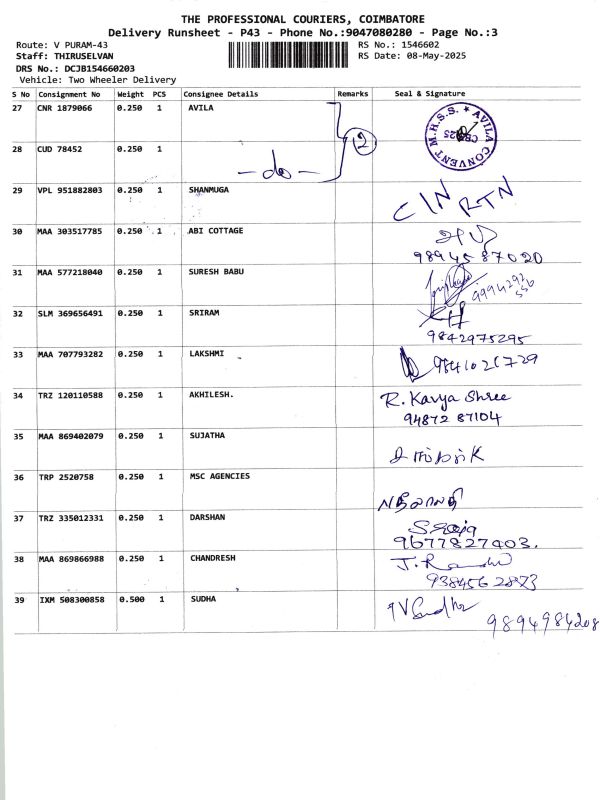 THE PROFESSIONAL COURIERS, COIMBATORE
Delivery Runsheet - P43 - Phone No.:9047080280 - Page No.:3
Route: V PURAM-43 RS No.: 1546602
Staff: THIRUSELVAN RS Date: 08-May-2025
DRS No.: DCJB154660203
Vehicle: Two Wheeler Delivery
S No Consignment No Weight PCS Consignee Details Remarks Seal & Signature
27 CNR 1879066 0.250 1 AVILA AVILA CONVENT M.H.S.S. ★
2
28 CUD 78452 0.250 1 - do -
29 VPL 951882803 0.250 1 SHANMUGA RTN
30 MAA 303517785 0.250 1 ABI COTTAGE
98945 87020
31 MAA 577218040 0.250 1 SURESH BABU 9994292
556
32 SLM 369656491 0.250 1 SRIRAM
9842975295
33 MAA 707793282 0.250 1 LAKSHMI 9841021729
34 TRZ 120110588 0.250 1 AKHILESH. R. Kavya Shree
94872 87104
35 MAA 869402079 0.250 1 SUJATHA
36 TRP 2520758 0.250 1 MSC AGENCIES
37 TRZ 335012331 0.250 1 DARSHAN
9677827403.
38 MAA 869866988 0.250 1 CHANDRESH
938456 2873
39 IXM 508300858 0.500 1 SUDHA
9894984208